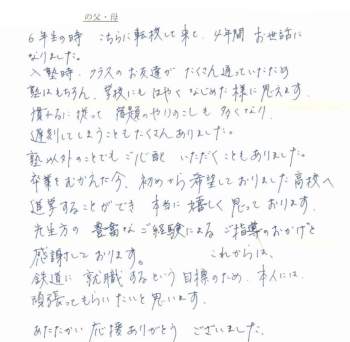 の父・母
6年生の時 こちらに転校して来て、4年間 お世話に
なりました。
入塾時、クラスのお友達が たくさん通っていたため
塾はもちろん、学校にも はやく なじめた様に思えます。
慣れるに従って 宿題のやりのこしも 多くなり、
遅刻してしまうことも たくさんありました。
塾以外のことでも ご心配 いただくこともありました。
卒業をむかえた今、初めから希望しておりました高校へ
進学することができ 本当に嬉しく思っております。
先生方の 豊富なご経験による ご指導のおかげと
感謝しております。 これからは、
鉄道に就職するという目標のため、本人には、
頑張ってもらいたいと思います。
あたたかい応援ありがとう ございました。